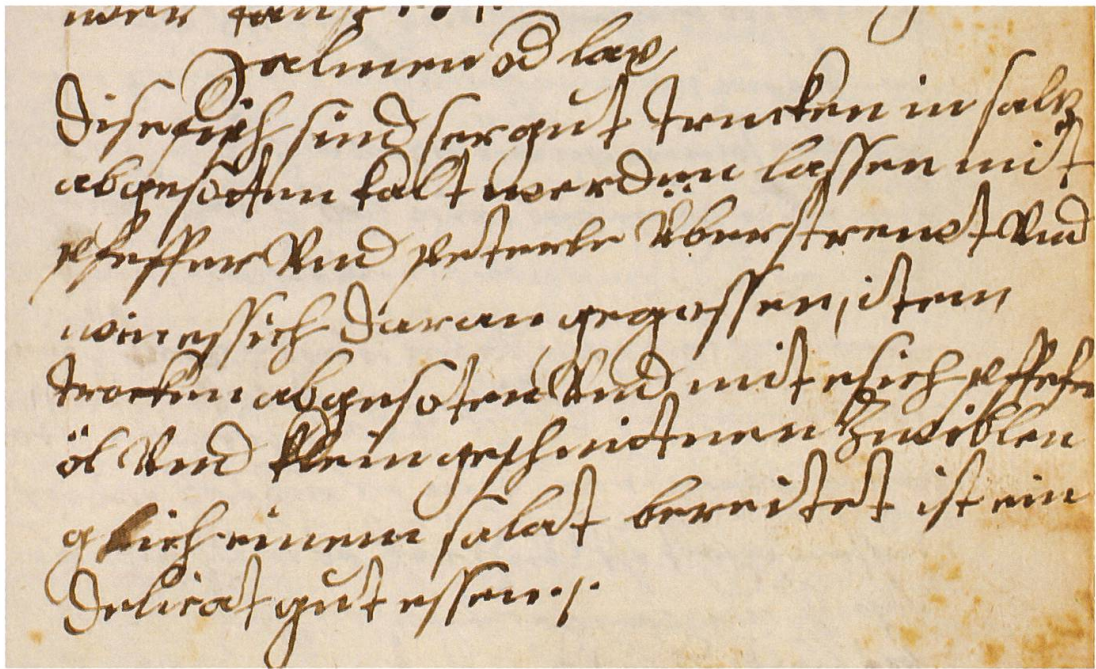 Salmen od lax
dise fisch sind ser gut trucken in saltz
abgesotten kalt werden lassen mit
pfeffer Vnd peterle Vberstrewet Vnd
win essich daran gegossen, item
trocken abgesoten Vnd mit esich pfeffer
öl Vnd klein geschnidtnen Zwiblen
gleich einem salat bereitet ist ein
delicat gut essen ·/·